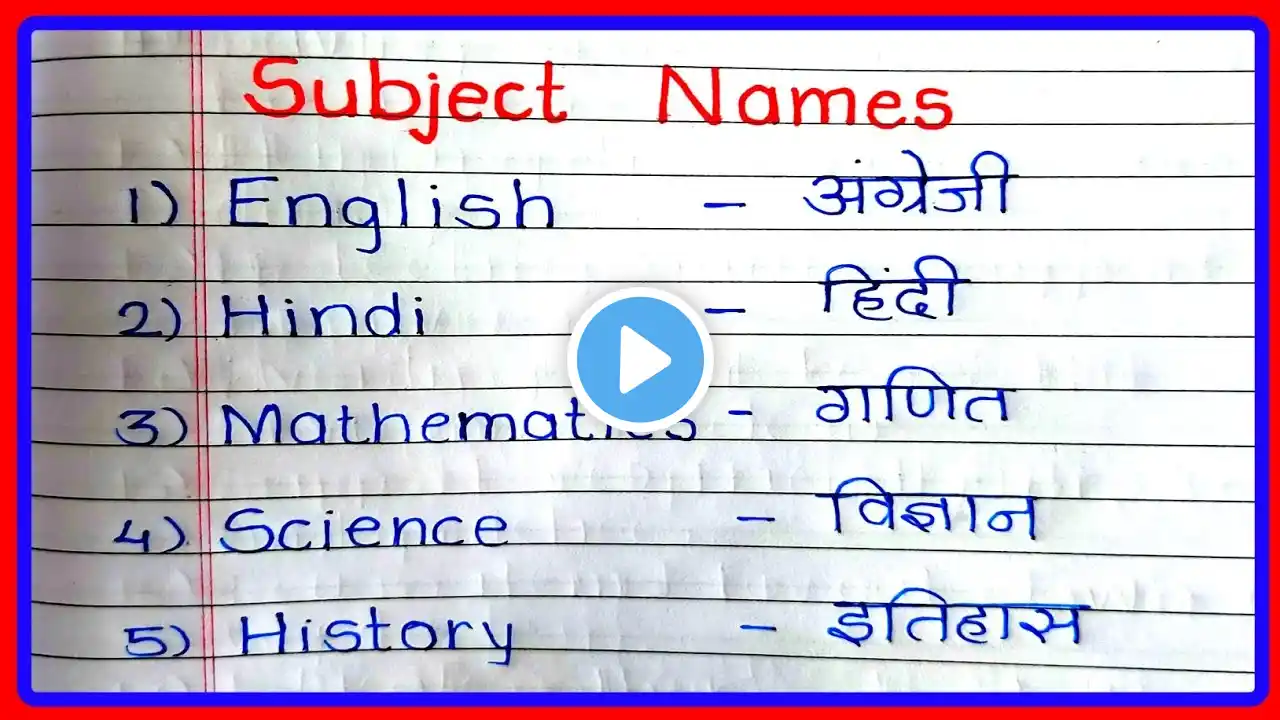 Subject Names
1) English - अंग्रेजी
2) Hindi - हिंदी
3) Mathematics - गणित
4) Science - विज्ञान
5) History - इतिहास